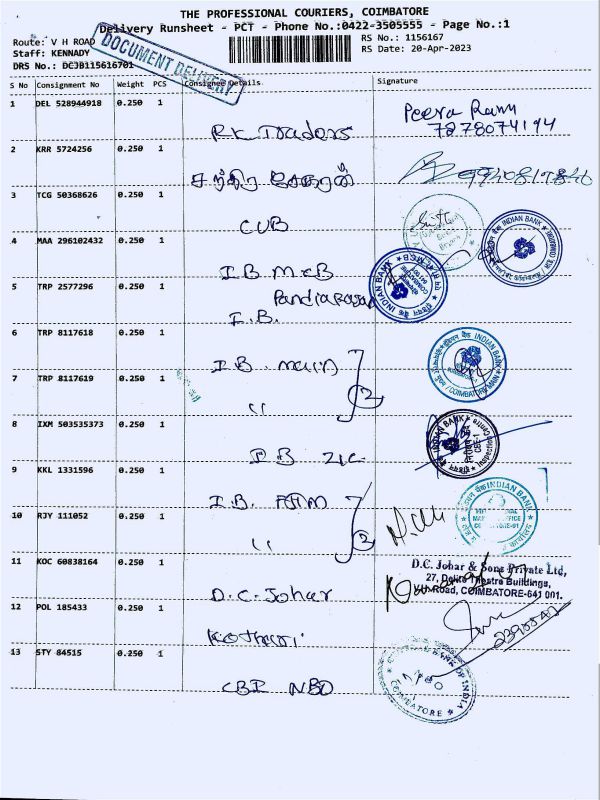 THE PROFESSIONAL COURIERS, COIMBATORE
Delivery Runsheet - PCT - Phone No.:0422-3505555 - Page No.:1
Route: V H ROAD
Staff: KENNADY
DRS No.: DCJB115616701
DOCUMENT DELIVERY
RS No.: 1156167
RS Date: 20-Apr-2023
S No Consignment No Weight PCS Consignee Details Signature
1 DEL 528944918 0.250 1 RK Traders Peera Ram 7878074194
2 KRR 5724256 0.250 1 சந்திர சேகரன்
3 TCG 50368626 0.250 1 CUB
4 MAA 296102432 0.250 1 I.B. McB
Pandiarajan
5 TRP 2577296 0.250 1 I.B.
6 TRP 8117618 0.250 1 I.B. main
7 TRP 8117619 0.250 1 "
2
8 IXM 503535373 0.250 1
9 KKL 1331596 0.250 1 I.B.
10 RJY 111052 0.250 1 "
2
11 KOC 60838164 0.250 1 D.C. Johar
D.C. Johar & Sons Private Ltd,
27, Delite Theatre Buildings,
V.H.Road, COIMBATORE-641 001.
12 POL 185433 0.250 1 Kothari
13 STY 84515 0.250 1 CBI NBO
INDIAN BANK
INDIAN BANK
INDIAN BANK
COIMBATORE MAIN
INDIAN BANK
INDIAN BANK
BANK OF INDIA
COIMBATORE